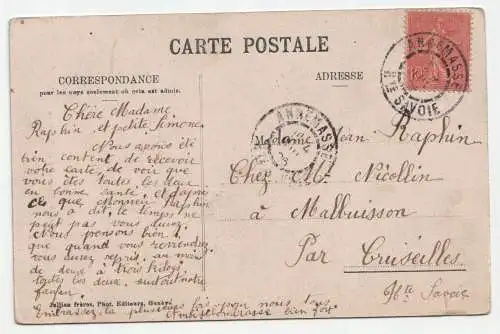 CARTE POSTALE
CORRESPONDANCE
pour les pays seulement où cela est admis.
ADRESSE
ANNEMASSE
Hte SAVOIE
ANNEMASSE
Chère Madame
Raphin et petite Simone
Nous avons été
très content de recevoir
votre carte de voir que
vous êtes toutes les deux
en bonne santé, et d'après
ce que Monsieur Raphin
nous a dit, le temps ne
peut pas vous durer.
Nous pensons bien
que quand vous reviendrez
vous aurez repris au moins
de deux à trois kilogs
toutes les deux, surtout notre
fanfan.
Embrassez la plusieurs fois pour nous tous
embrasse bien fort
Madame Jean Raphin
Chez Mr Nicollin
à Malbuisson
Par Cruseilles
Hte Savoie
Jullien frères, Phot. Editeurs, Genève